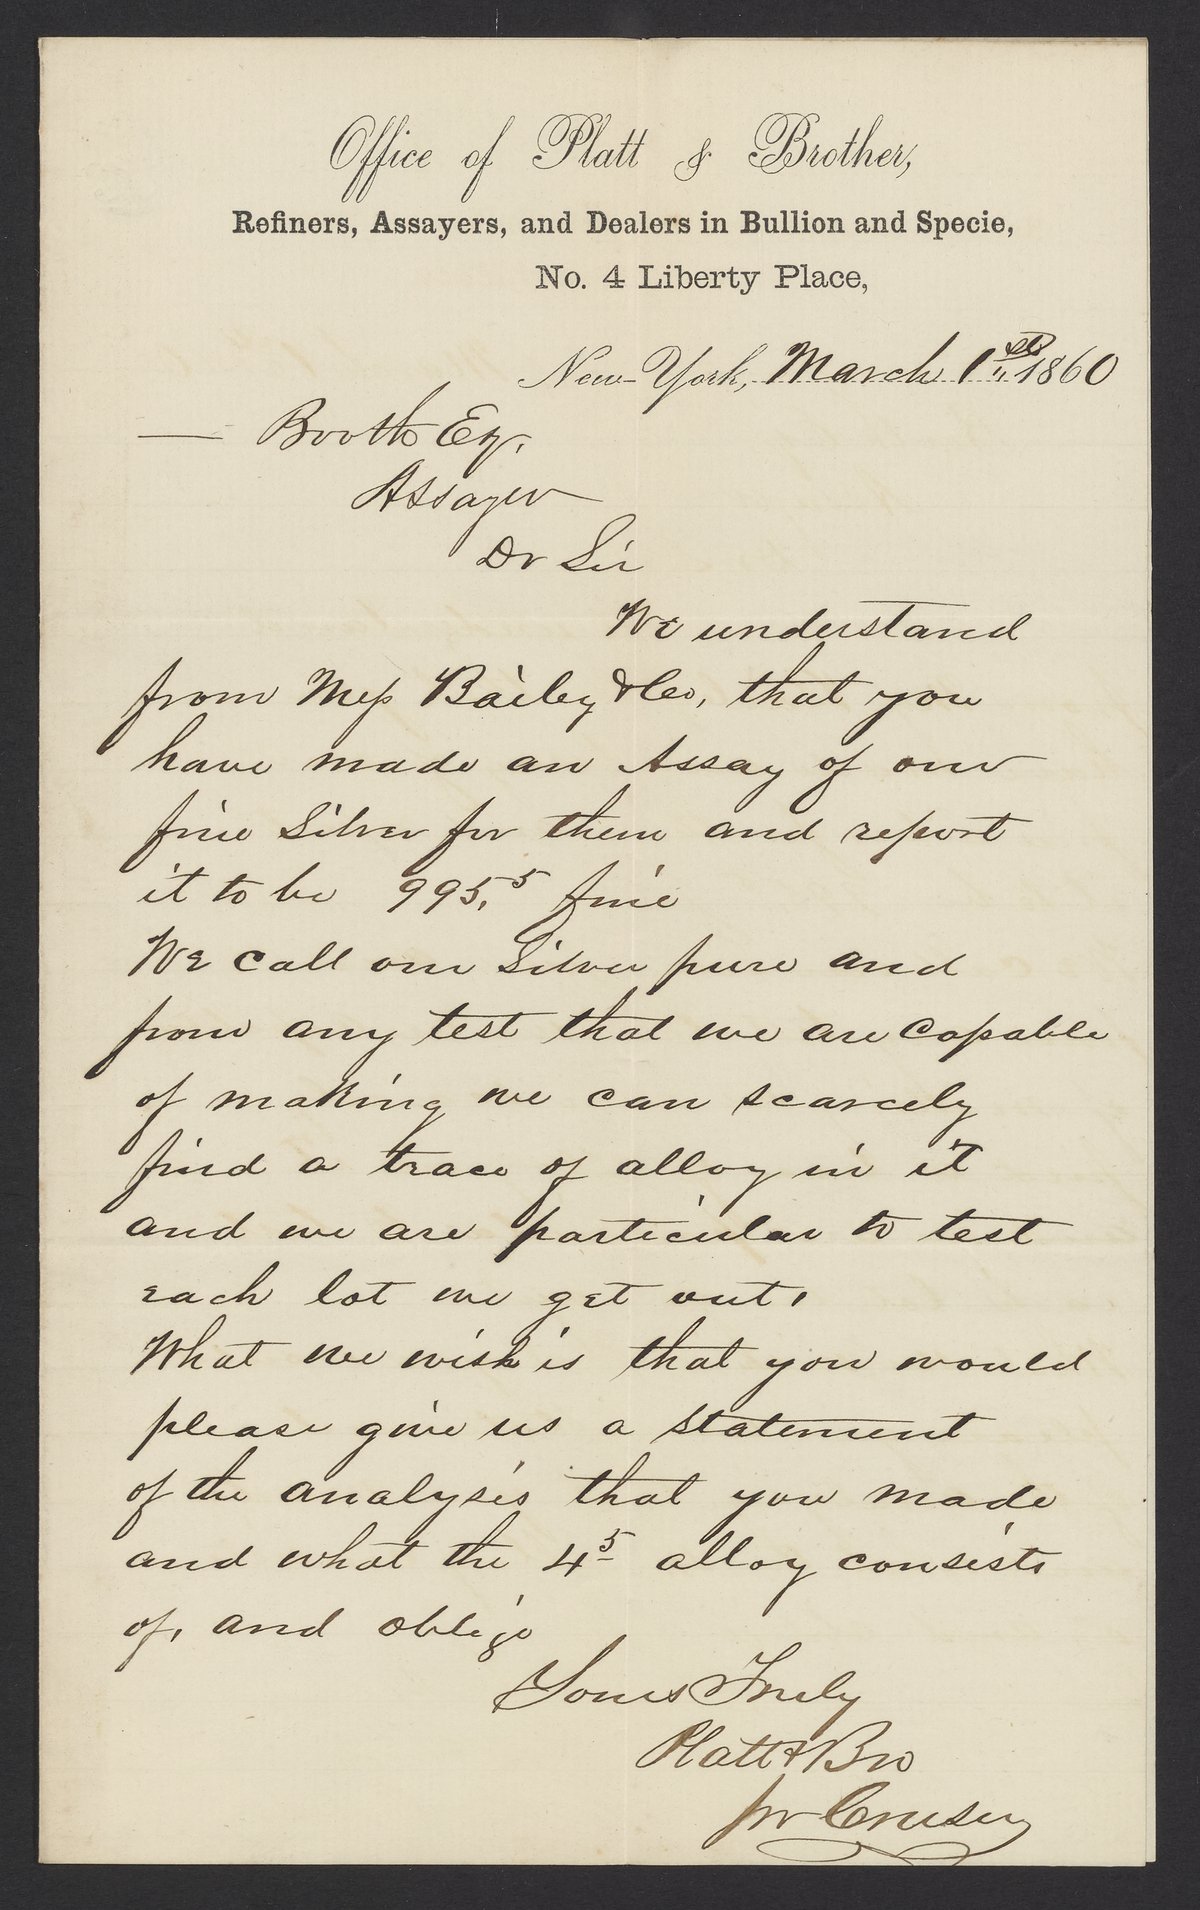 Office of Platt & Brother,
Refiners, Assayers, and Dealers in Bullion and Specie,
No. 4 Liberty Place,
New-York, March 1st 1860
— Booth Esq.
Assayer
Dr Sir
We understand
from Mess Bailey & Co, that you
have made an Assay of our
fine Silver for them and report
it to be 995.5 fine
We call our Silver pure and
from any test that we are capable
of making we can scarcely
find a trace of alloy in it
and we are particular to test
each lot we get out.
What we wish is that you would
please give us a statement
of the analysis that you made
and what the 4 5 alloy consists
of, and oblige
Yours Truly
Platt & Bro
pr Cruser